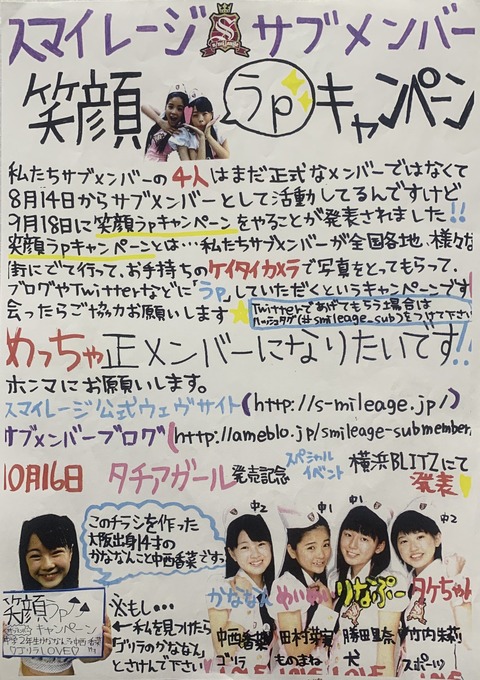 スマイレージ サブメンバー
笑顔 うp キャンペーン
私たちサブメンバーの4人はまだ正式なメンバーではなくて
8月14日からサブメンバーとして活動してるんですけど
9月18日に笑顔うpキャンペーンをやることが発表されました!!
笑顔うpキャンペーンとは…私たちサブメンバーが全国各地、様々な
街にでて行って、お手持ちのケイタイカメラで写真をとってもらって、
ブログやTwitterなどに「うp」していただくというキャンペーンです
会ったらご協力お願いします
Twitterであげてもらう場合は
ハッシュタグ(#smileage_sub)をつけて下さい
めっちゃ正メンバーになりたいです!!
ホンマにお願いします。
スマイレージ公式ウェヴサイト(http://s-mileage.jp/)
サブメンバーブログ(http://ameblo.jp/smileage-submember
10月16日 タチアガール発売記念 スペシャルイベント 横浜BLITZにて
発表!
このチラシを作った
大阪出身14才の
かななんこと中西香菜です
笑顔うp
キャンペーン
中学2年生かななん中西香菜
♡ゴリラLOVE♡
※もし…
←私を見つけたら
「ゴリラのかななん」
とさけんで下さい
中2 中1 中1 中2
かななん めいめい りなぷー タケちゃん
中西香菜 田村芽実 勝田里奈 竹内朱莉
ゴリラ ものまね 犬 スポーツ
LOVE LOVE LOVE